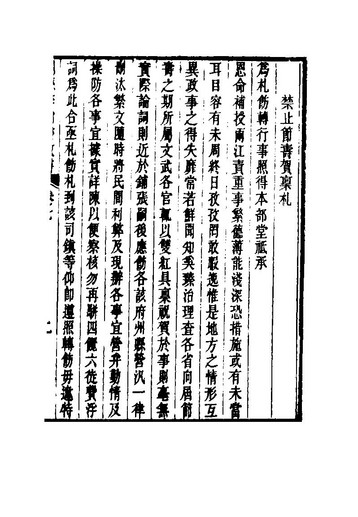 禁止節壽賀稟札
為札飭轉行事照得本部堂祗承
恩命補授兩江責重事繁德薄能淺深恐措施或有未當
耳目容有未周終日孜孜罔敢暇逸惟是地方之情形互
異政事之得失靡常若鮮聞知奚臻治理查各省向屆節
壽之期所屬文武各官輒以雙紅具稟祝賀於事則毫無
實際論詞則近於鋪張嗣後應飭各該府州縣營汛一律
刪汰繁文隨時將民間利弊及現辦各事宜營弁勤惰及
操防各事宜據實詳陳以便察核勿再駢四儷六徒費浮
詞為此合亟札飭札到該司鎮等仰即遵照轉飭毋違特